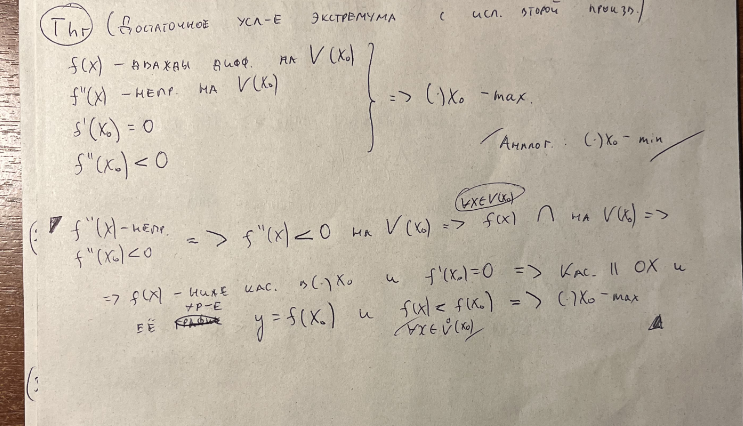 Thr (Достаточное усл-е экстремума с исп. второй произв.)
f(x) - дважды дифф. на V(x₀)
f''(x) - непр. на V(x₀)
f'(x₀) = 0
f''(x₀) < 0
=> (·) x₀ - max.
Аналог.: (·) x₀ - min
f''(x) - непр.
f''(x₀) < 0
=> f''(x) < 0 на V(x₀) => f(x) ∩ на V(x₀) =>
∀x∈V(x₀)
=> f(x) - ниже кас. в (·) x₀ и f'(x₀) = 0 => кас. || OX и
её ур-е y = f(x₀) и f(x) < f(x₀) => (·) x₀ - max
∀x∈V̊(x₀)